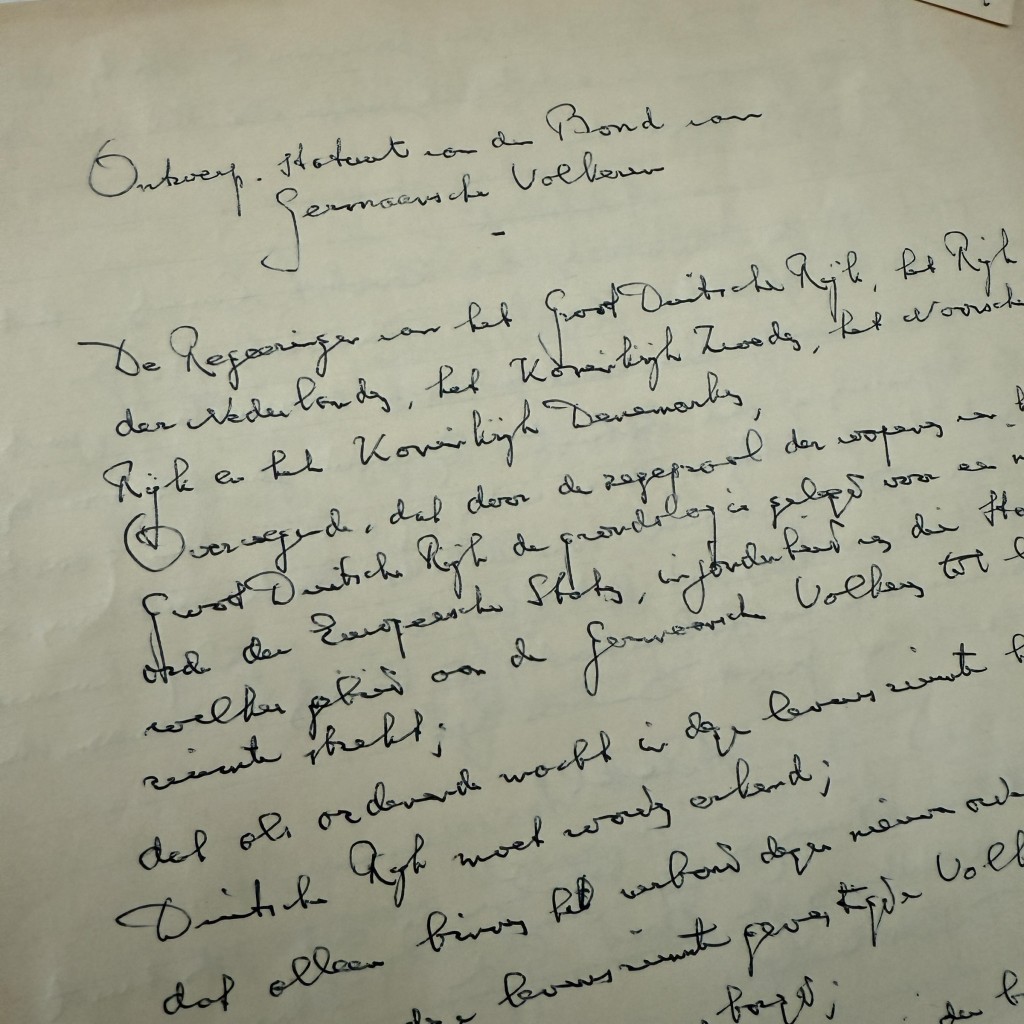 Ontwerp. Statuut van den Bond van
Germaansche Volkeren
-
De Regeeringen van het Groot Duitsche Rijk, het Rijk
der Nederlanden, het Koninkrijk Zweden, het Noorsche
Rijk en het Koninkrijk Denemarken,
Overwegende, dat door de zegepraal der wapens van
Groot Duitsche Rijk de grondslag is gelegd voor een
orde der Europeesche Staten, in zonderheid van die
welker gebied aan de Germaansche Volken tot
ruimte strekt;
dat als ordenende macht in deze levensruimte
Duitsche Rijk moet worden erkend;
dat alleen binnen het verband dezer nieuwe
deze levensruimte gevestigde
borgd;
den